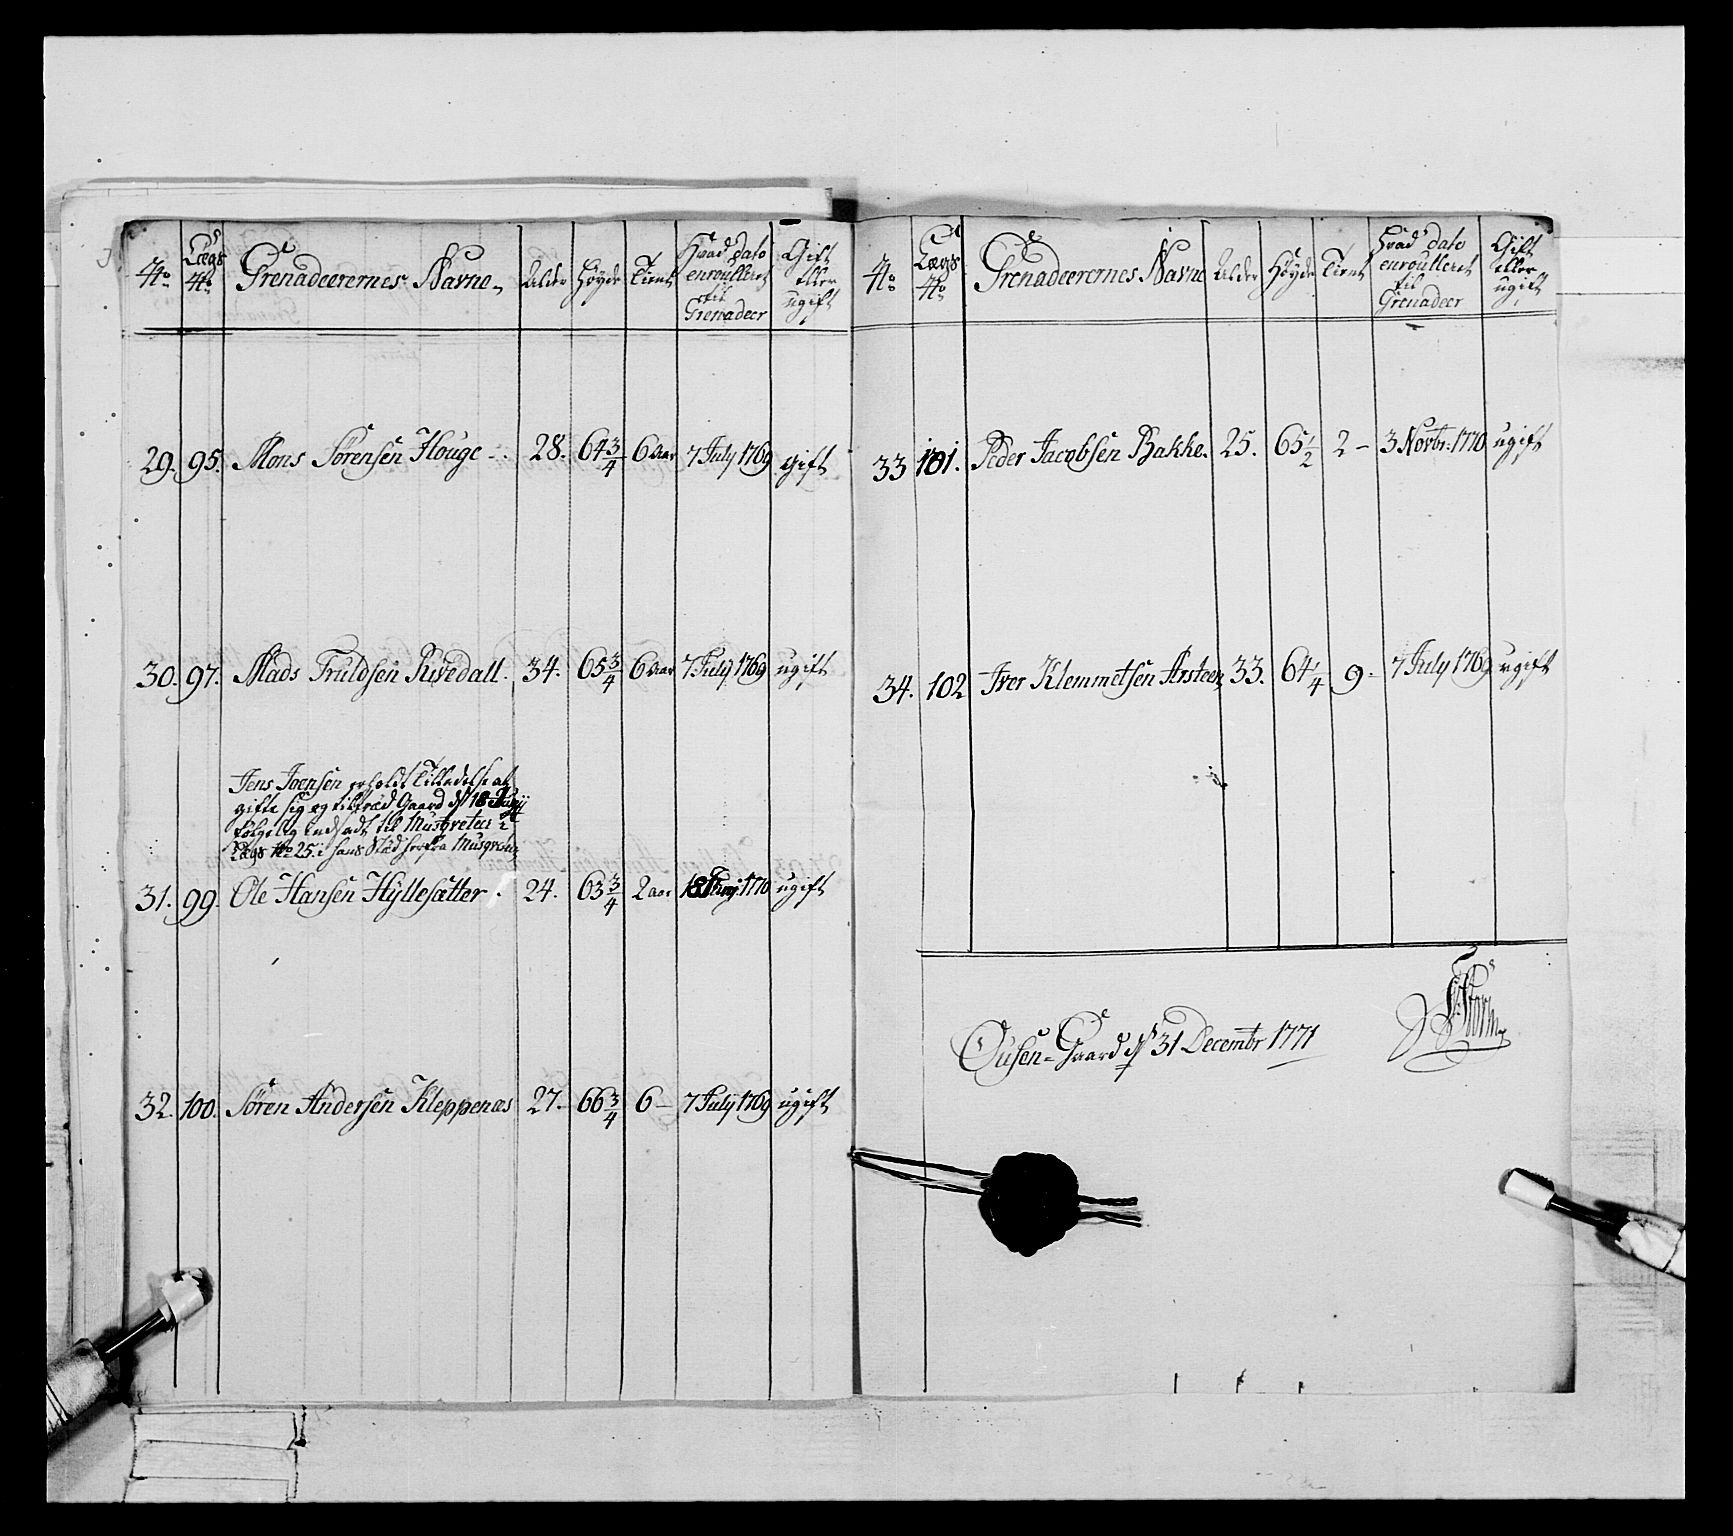 No Lægs No Grenadeerernes Navne Alder Höyde Tient Hvad dato enroulleret til Grenadeer Gift eller ugift
29. 95. Mons Sörensen Houge 28. 64 3/4 6 aar 7 July 1769 gift
30. 97. Mads Truldsen Rivedall. 34. 65 3/4 6 aar 7 July 1769 ugift
Jens Joensen erholdt Tilladelse at
gifte sig og tiltræd Gaard d 18 Junij
følgelig indsadt til Musqveteer i
Lægs No 25. i hans Stæd herfra Musqvet
31. 99. Ole Hansen Hÿllesætter. 24. 63 3/4 2 aar 18 Junij 1770 ugift
32. 100. Sören Andersen Kleppenæs 27. 66 3/4 6 — 7 July 1769 ugift
No Lægs No Grenadeerernes Navne Alder Höyde Tient Hvad dato enroulleret til Grenadeer Gift eller ugift
33 101. Peder Jacobsen Bakke. 25. 65 1/2 2 — 3 Novbr. 1770 ugift
34. 102 Iver Klemmetsen Arsteen 33. 64 1/4 9 - 7 July 1769 ugift
Ousen-Gaard d 31 Decembr 1771
Storm